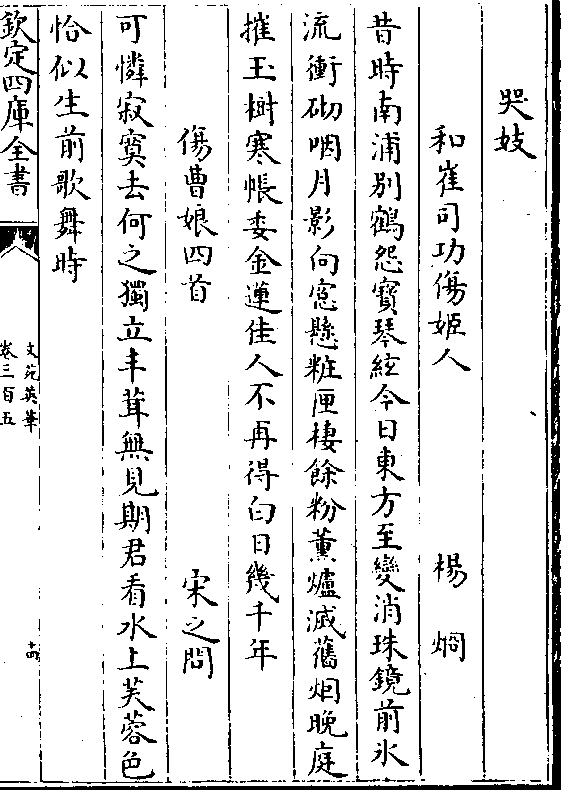 哭妓
和崔司功傷姬人 楊烱
昔時南浦別鶴怨寳琴絃今日東方至變消珠鏡前水
流衝砌咽月影向窓懸粧匣棲餘粉薰爐滅舊烟晚庭
摧玉樹寒帳委金蓮佳人不再得白日幾千年
傷曹娘四首 宋之問
可憐寂寞去何之獨立丰茸無見期君看水上芙蓉色
恰似生前歌舞時
欽定四庫全書
文苑英華
卷三百五
十四